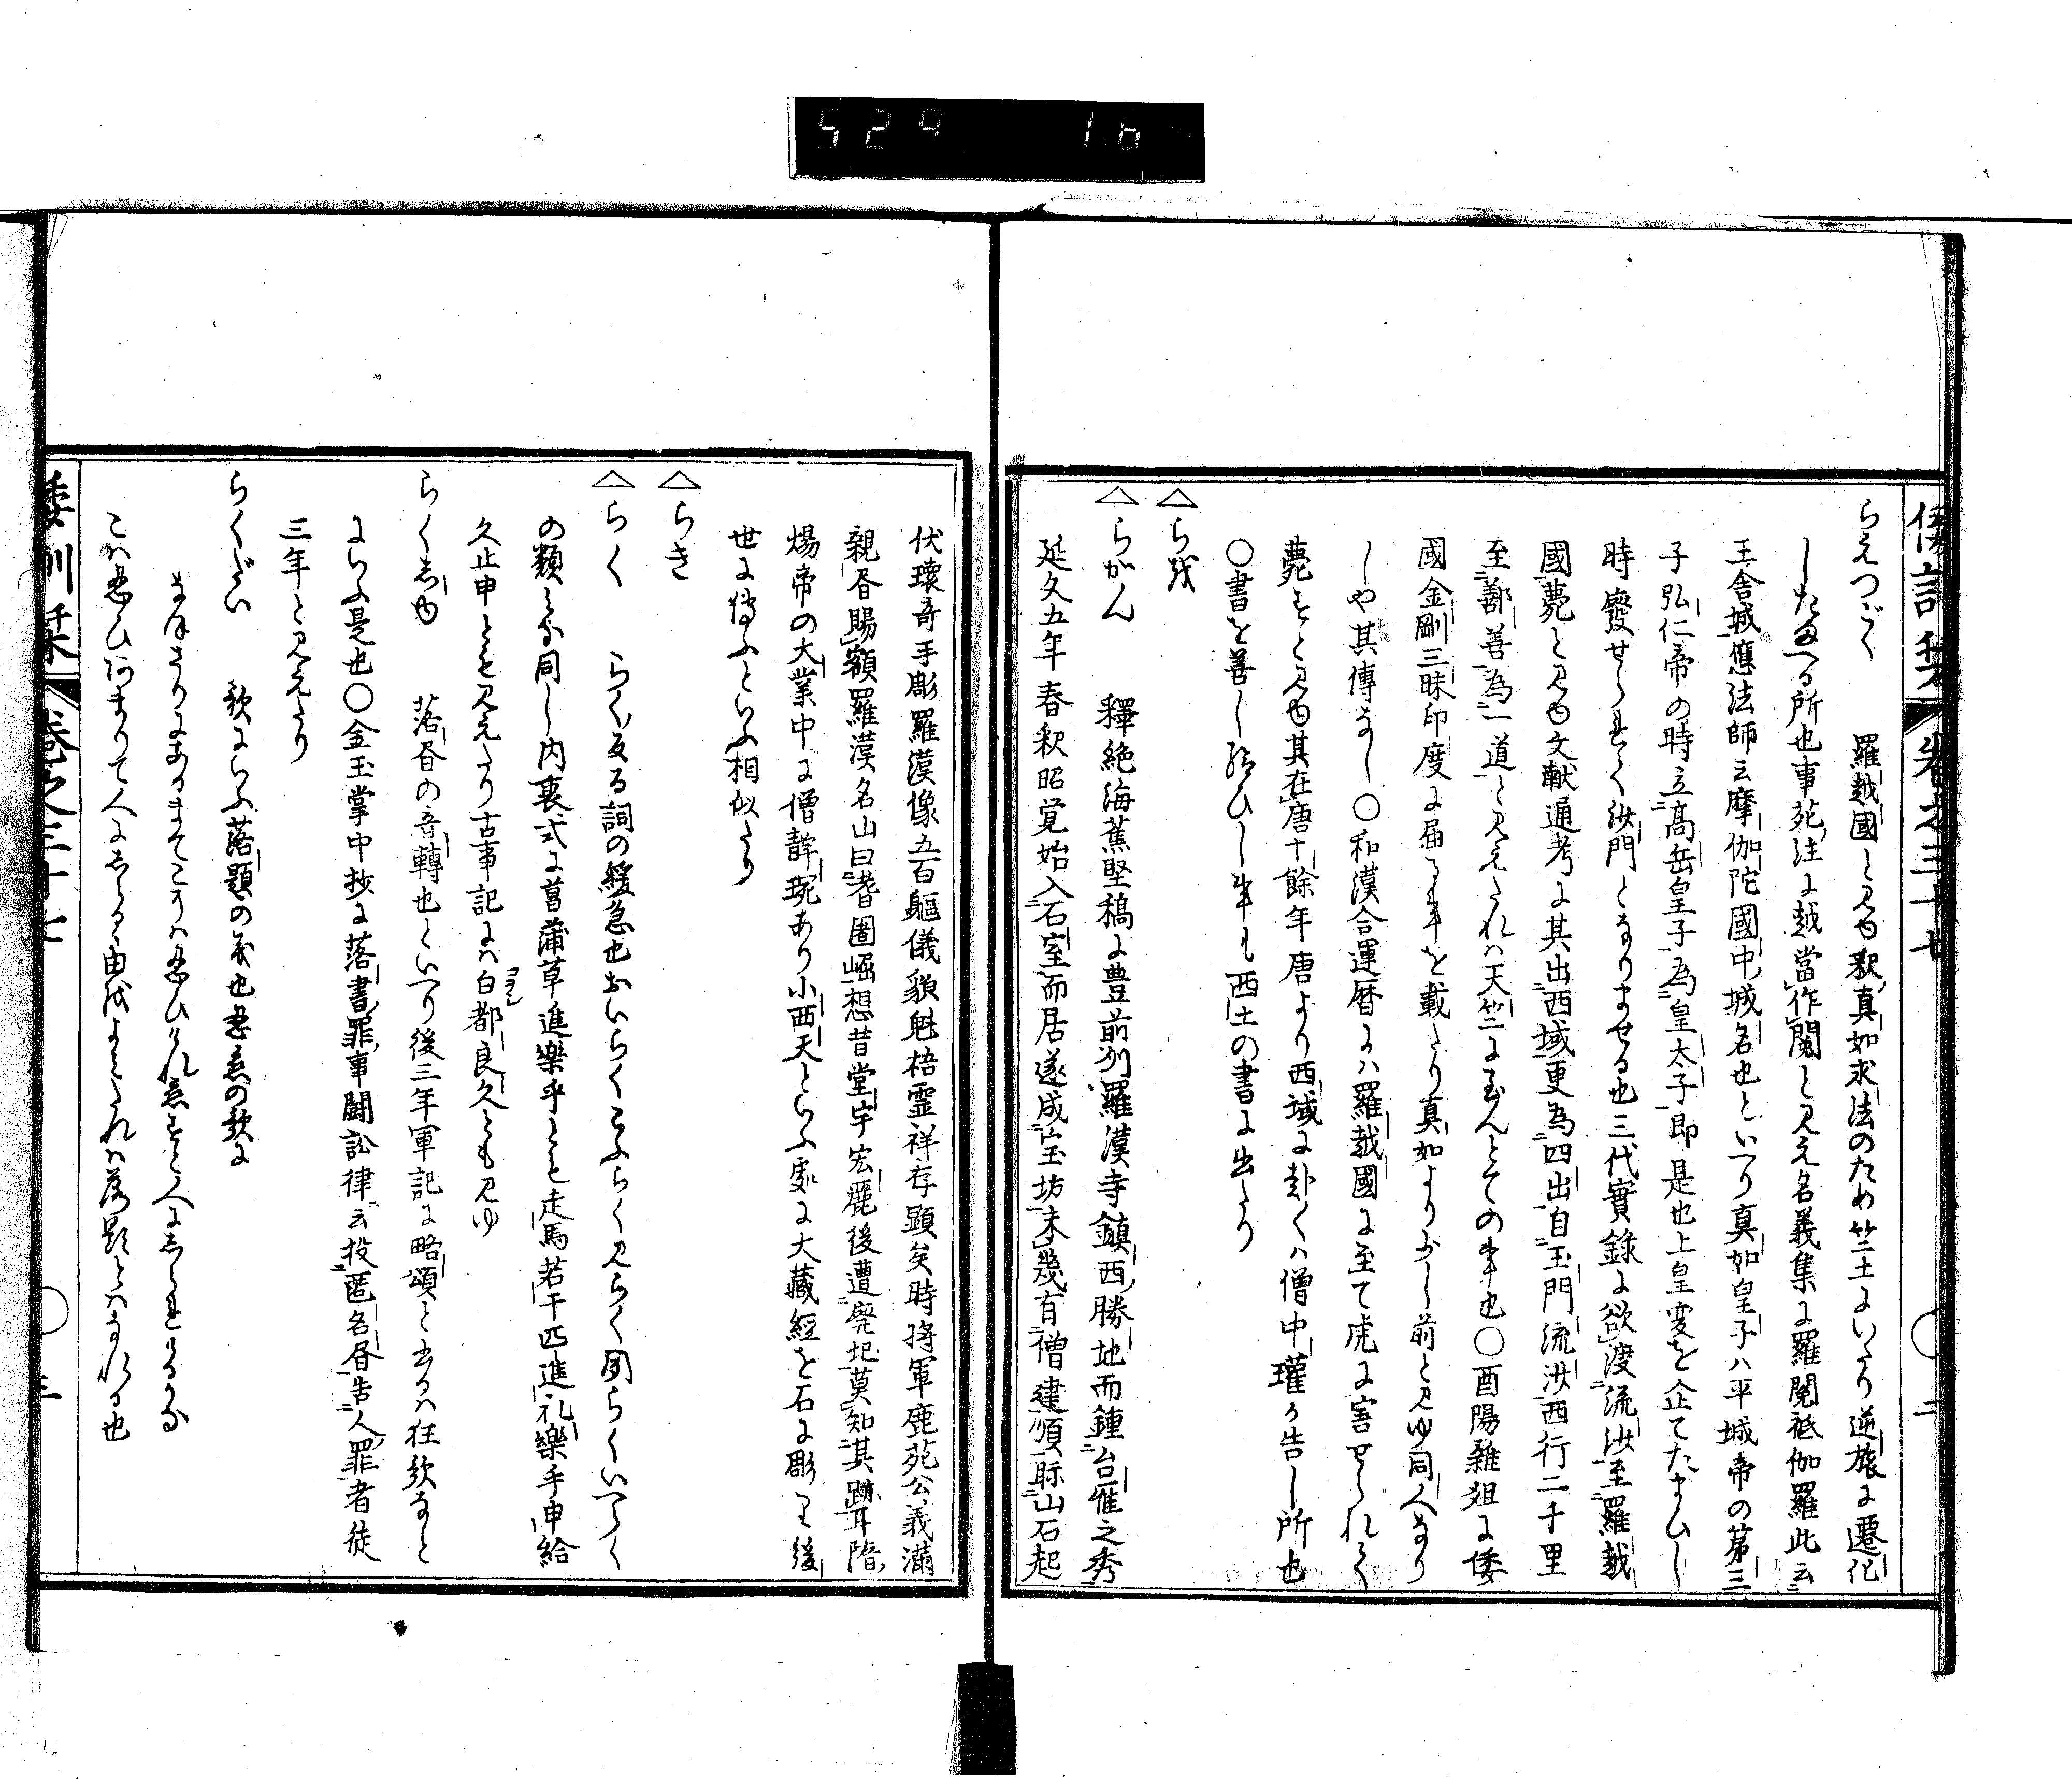 529 16
倭訓栞 卷之三十七 二
らえつごく 羅越國と見ゆ釈真如求法のため竺土にいたり逆旅に遷化
したまへる所也事苑注に越當作閲と見え名義集に羅閲祗伽羅此云
王舎城應法師云摩伽陀國中城名也といへり真如皇子ハ平城帝の第三
子弘仁帝の時立高岳皇子為皇太子即是也上皇変を企てたまひし
時廢せられて沙門となりませる也三代實録に欲渡流沙至羅越
國薨と見ゆ文献通考に其出西域更為四出自玉門流沙西行二千里
至鄯善為一道と見えたれハ天竺に至んとての事也〇酉陽雜俎に倭
國金剛三昧印度に届る事を載たり真如より少し前と見ゆ同人なり
しや其傳なし〇和漢合運暦にハ羅越國に至て虎に害せられて
薨すと見ゆ其在唐十餘年唐より西域に赴くハ僧中瓘か告し所也
〇書を善し給ひし事も西土の書に出たり
△らき
△らがん 釋絶海蕉堅稿に豊前州羅漢寺鎮西勝地而鍾台雁之秀
延文五年春釈昭覚始入石室而居遂成宝坊未幾有僧建順聎山石起
伏瓌奇手彫羅漢像五百軀儀貌魁梧霊祥存顕矣時将軍鹿苑公義満
親昏賜額羅漢名山曰耆闍崛想昔堂宇宏麗後遭廃圯莫知其跡耳隋
煬帝の大業中に僧静琬あり小西天といふ処に大藏經を石に彫りて後
世に傳ふといふ相似たり
△らき
△らく らく反る詞の緩急也おいらくこふらく見らく聞らくいへらく
の類みな同し内裏式に菖蒲草進樂乎とも走馬若干匹進礼樂乎申給
久止申とも見えたり古事記にハ白都良久とも見ゆ
らく志ゆ 落昏の音轉也といへり後三年軍記に略頌と書るハ狂歌なと
にいふ是也〇金玉掌中抄に落書罪事闘訟律云投匿名昏告人罪者徒
三年と見えたり
らくだい 歌にいふ落題の義也忍恋の歌に
なほさりにあるまてこそハ忍ひけれ恋すと人にしられけるかな
こハ忍ひあまりて人にしらるゝ由をよみたれハ落題とハなれる也
倭訓栞 卷之三十七 三